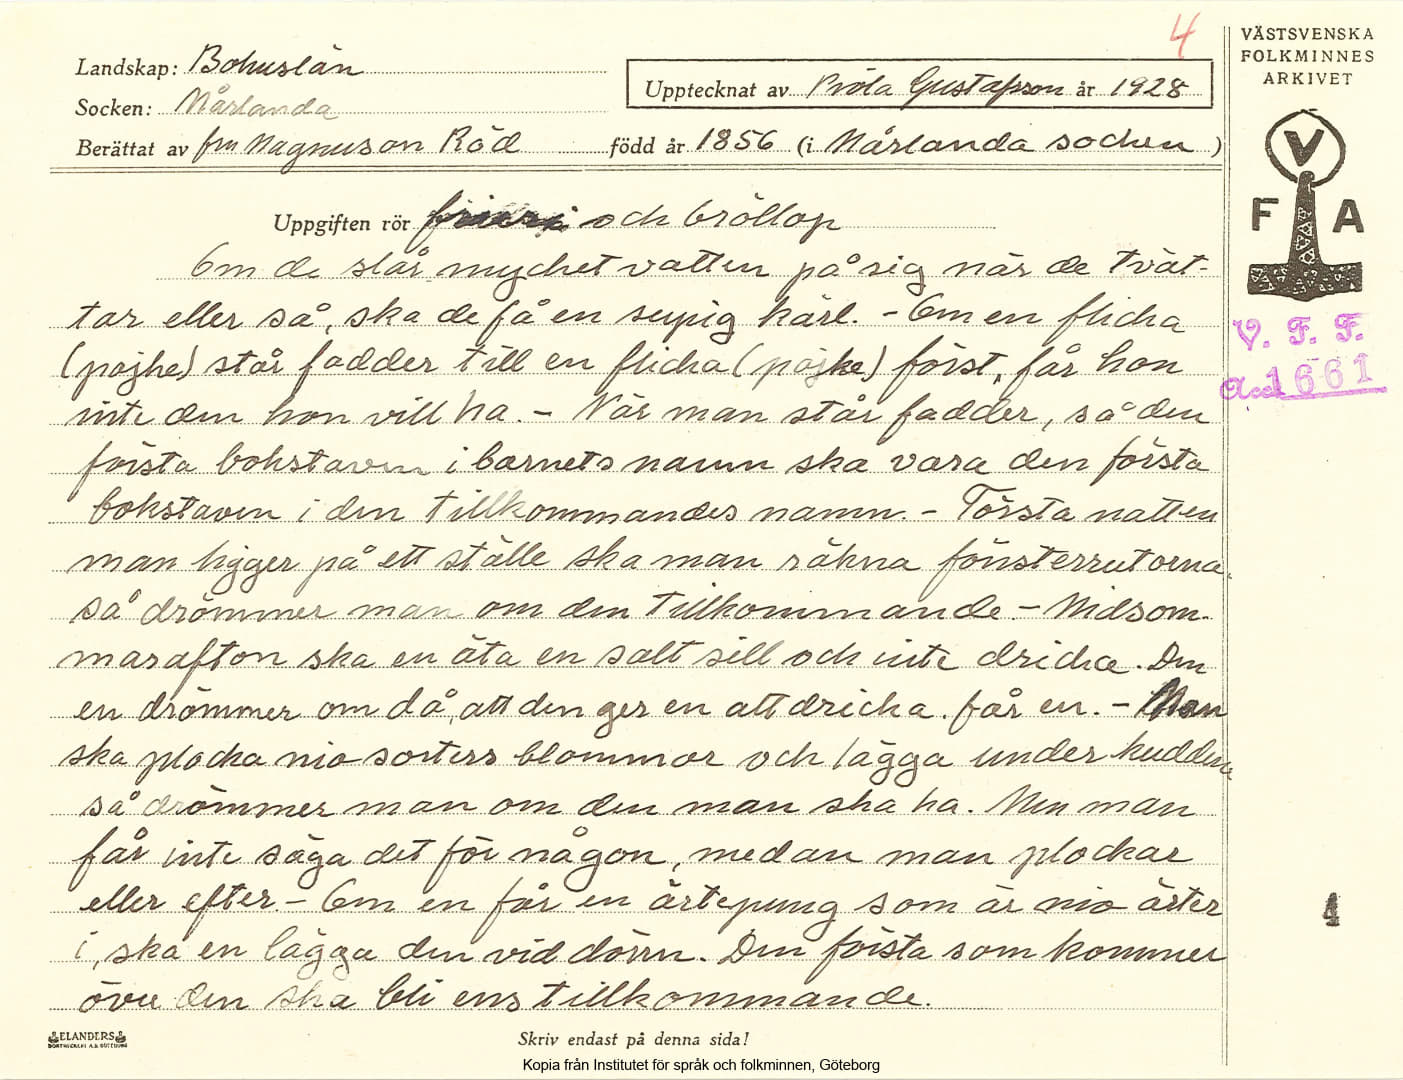 4
VÄSTSVENSKA
FOLKMINNES
ARKIVET
Landskap: Bohuslän
Socken: Nårlanda
Upptecknat av Viola Gustafsson år 1928
Berättat av fru Magnuson Röd född år 1856 (i Nårlanda socken)
V
F A
Uppgiften rör frieri och bröllop
Om de slår mycket vatten på sig när de tvät-
tar eller så, ska de få en supig kärl. - Om en flicka
(pojke) står fadder till en flicka (pojke) först, får hon
inte den hon vill ha. - När man står fadder, så den
första bokstaven i barnets namn ska vara den första
bokstaven i den tillkommandes namn. - Första natten
man ligger på ett ställe ska man räkna fönsterrutorna,
så drömmer man om den tillkommande. - Midsom-
marafton ska en äta en salt sill och inte dricka. Den
en drömmer om då, att den ger en att dricka. får en. - Man
ska plocka nio sorters blommor och lägga under kudden,
så drömmer man om den man ska ha. Men man
får inte säga det för någon, medan man plockar
eller efter. - Om en får en ärtepung som är nio ärter
i, ska en lägga den vid dörrn. Den första som kommer
över den ska bli ens tillkommande.
V. F. F.
Acc 1661
4
ELANDERS
BOKTRYCKERI A.B. GÖTEBORG
Skriv endast på denna sida!
Kopia från Institutet för språk och folkminnen, Göteborg